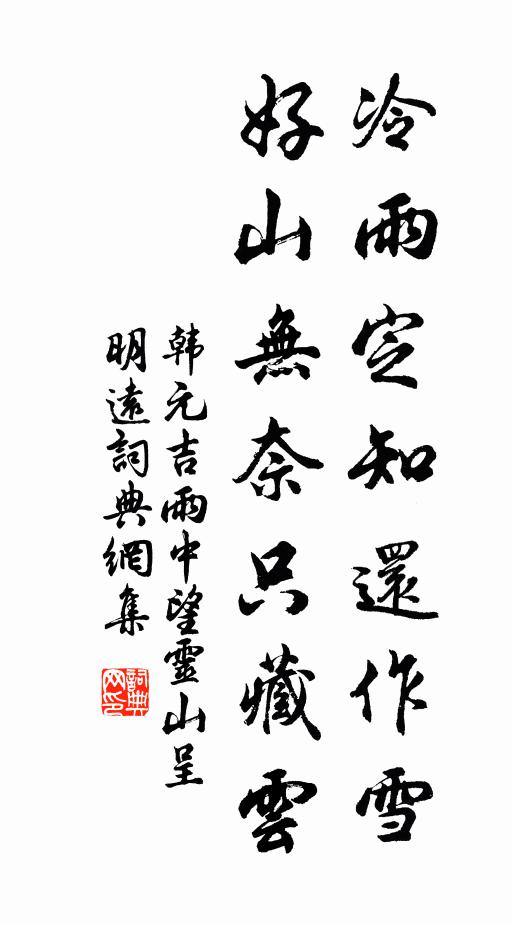 冷雨定知還作雪
好山無奈只藏雲
韩元吉雨中望靈山呈
明遠詞典網集
詞典
网印